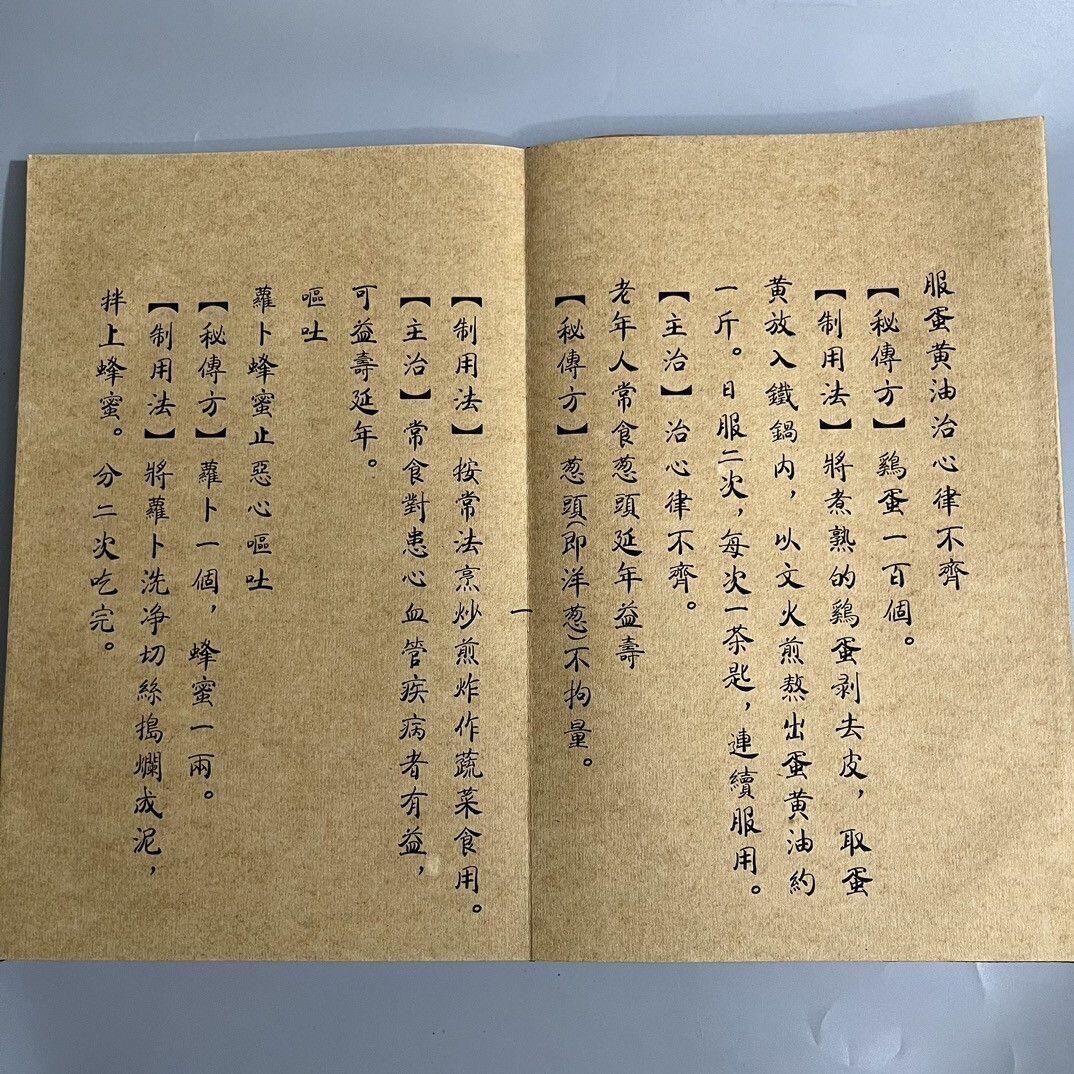 服蛋黄油治心律不齊
【秘傳方】鷄蛋一百個。
【制用法】將煮熟的鷄蛋剥去皮，取蛋
黄放入鐵鍋内，以文火煎熬出蛋黄油約
一斤。日服二次，每次一茶匙，連續服用。
【主治】治心律不齊。
老年人常食葱頭延年益壽
【秘傳方】葱頭(即洋葱)不拘量。
一
【制用法】按常法烹炒煎炸作蔬菜食用。
【主治】常食對患心血管疾病者有益，
可益壽延年。
嘔吐
蘿卜蜂蜜止惡心嘔吐
【秘傳方】蘿卜一個，蜂蜜一兩。
【制用法】將蘿卜洗净切絲搗爛成泥，
拌上蜂蜜。分二次吃完。